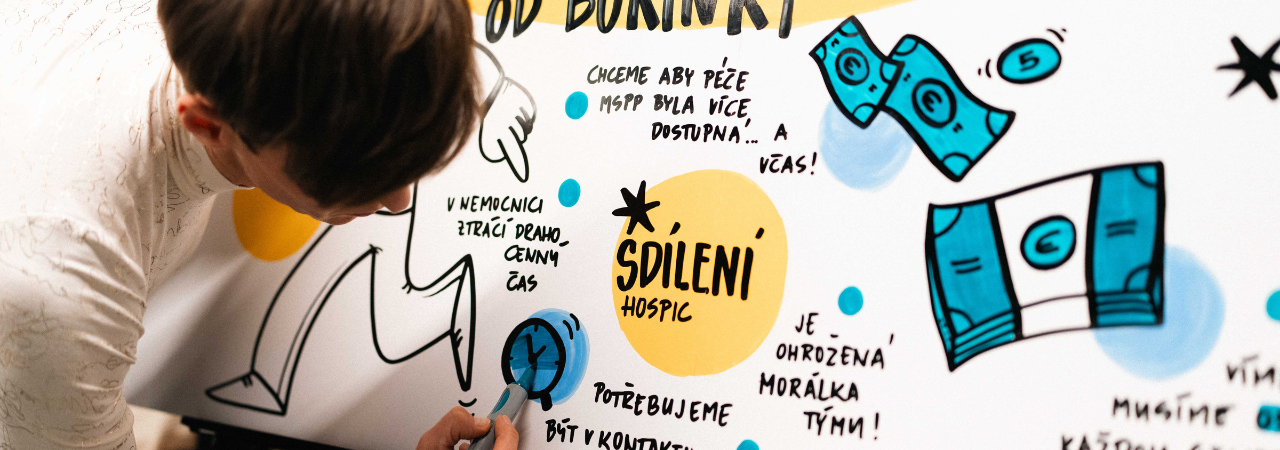 OD BURINKY
CHCEME ABY PÉČE
MSPP BYLA VÍCE
DOSTUPNÁ... A
VČAS!
V NEMOCNICI
ZTRÁCÍ DRAHO
CENNÝ
ČAS
SDÍLENÍ
HOSPIC
€
€
5
€
JE
OHROŽENÁ
MORÁLKA
TÝMU!
POTŘEBUJEME
BÝT V KONTAKTU
VÍM
MUSÍME
KAŽDOU